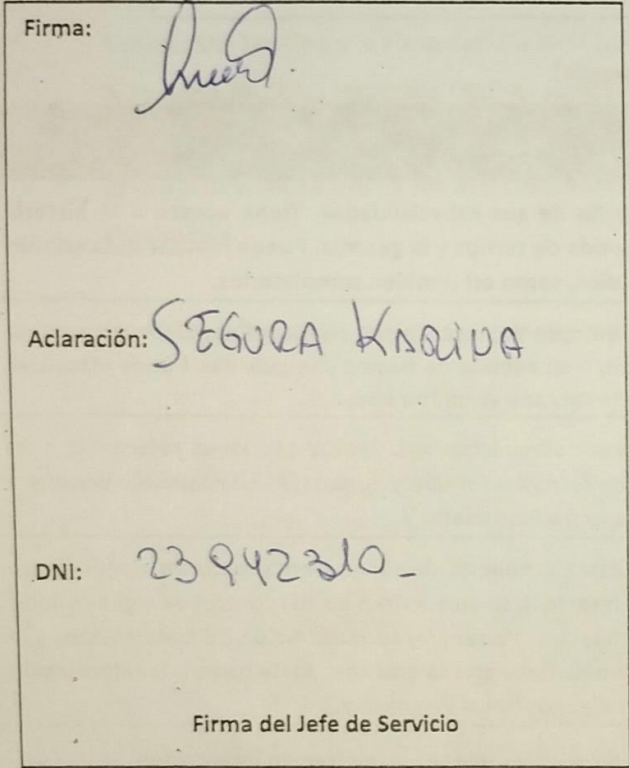 Firma:
Aclaración: SEGURA KARINA
DNI: 23942310_
Firma del Jefe de Servicio